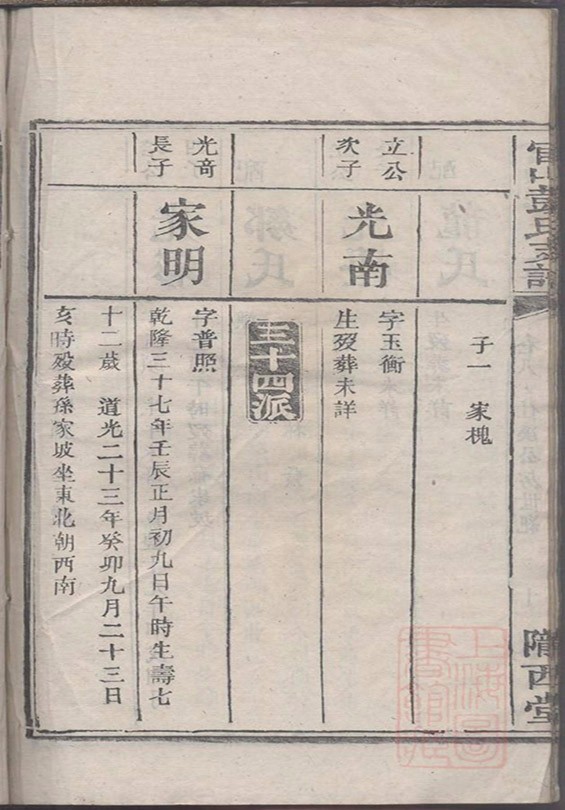 官山彭氏支譜
隴西堂
子一 家槐
立公
次子
光南
字玉衡
生歿葬未詳
三十四派
光奇
長子
家明
字普照
乾隆三十七年壬辰正月初九日午時生壽七
十二歲 道光二十三年癸卯九月二十三日
亥時歿葬孫家坡坐東北朝西南
上海圖
書館藏